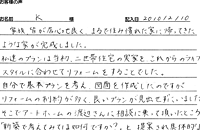 お客様の声
お名前 K 様 記入日 2010/2/10
家族皆が居心地良く、まるで住み慣れた家に帰ってきた
ような家が完成しました。
私達のプランは当初、二世帯住宅の実家をこれからのライフ
スタイルに合わせてリフォームをすることでした。
自分で基本プランを考え、図面を作成したのですが
リフォームの利が少なく良いプランが見出せずにいました
そこでアートホームの渡辺さんに相談に乗って頂いたところ
「新築で考えてみては如何ですか?」と提案され具体的